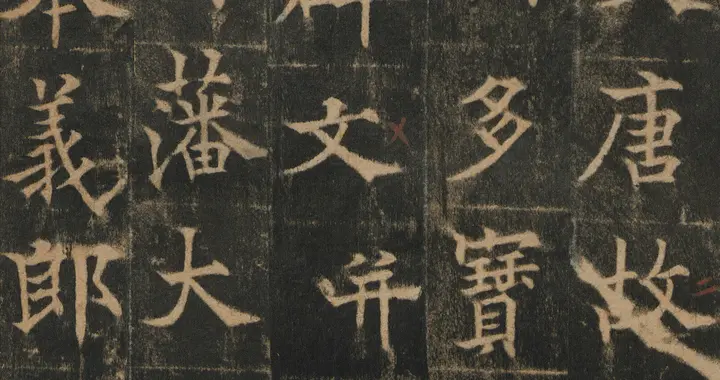 唐故
多寶
文并
藩大
義郎